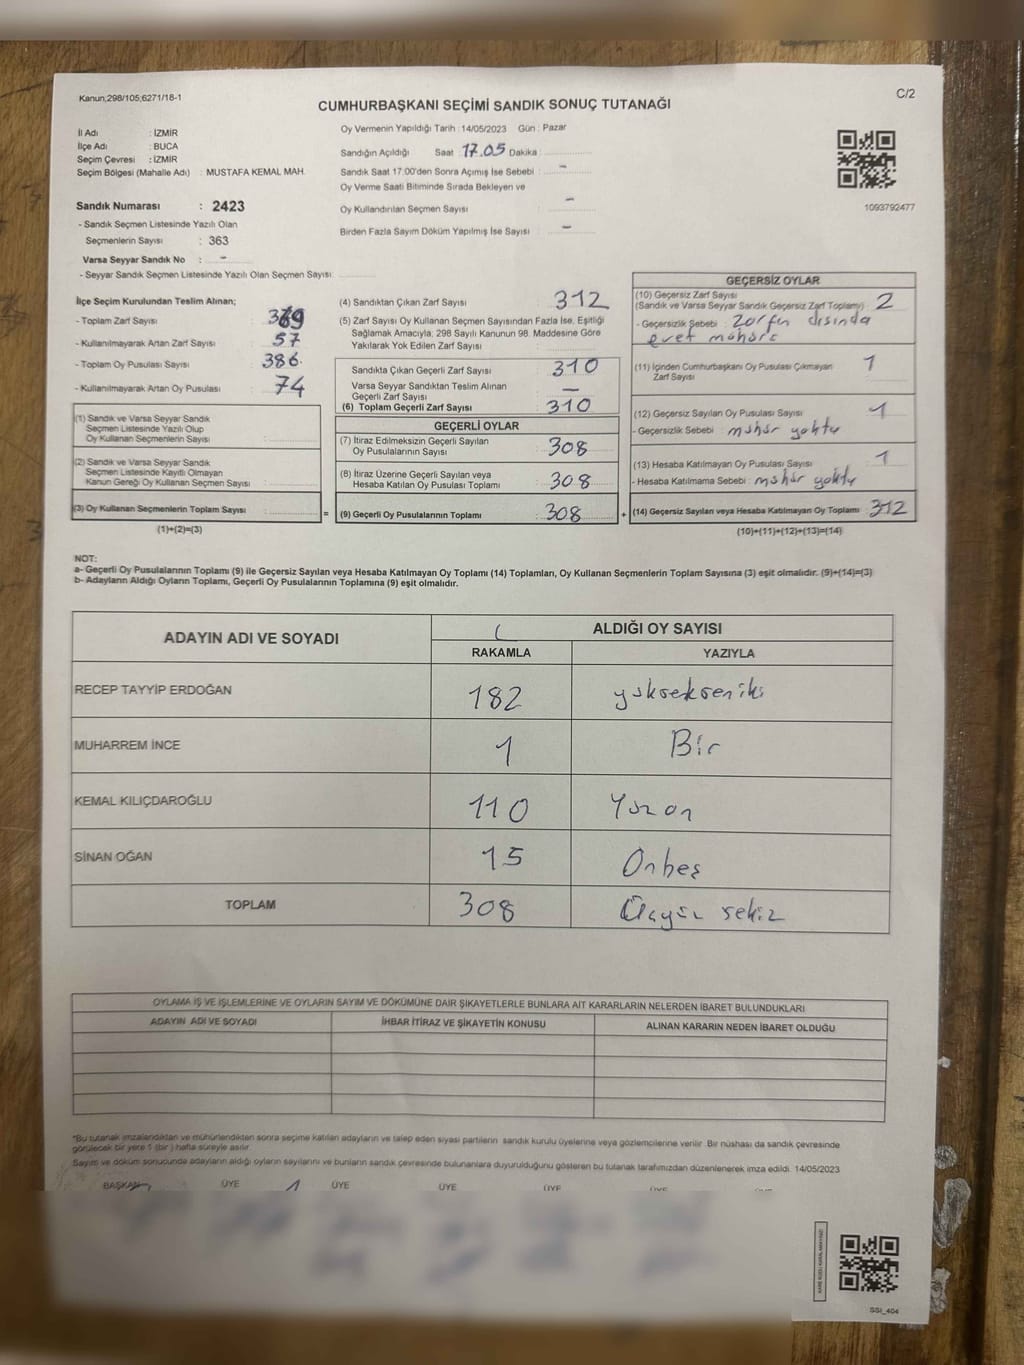 Kanun;298/105;6271/18-1
C/2
CUMHURBAŞKANI SEÇİMİ SANDIK SONUÇ TUTANAĞI
İl Adı : İZMİR
İlçe Adı : BUCA
Seçim Çevresi : İZMİR
Seçim Bölgesi (Mahalle Adı) : MUSTAFA KEMAL MAH.
Sandık Numarası : 2423
- Sandık Seçmen Listesinde Yazılı Olan
Seçmenlerin Sayısı : 363
Varsa Seyyar Sandık No : -
- Seyyar Sandık Seçmen Listesinde Yazılı Olan Seçmen Sayısı:
Oy Vermenin Yapıldığı Tarih : 14/05/2023 Gün : Pazar
Sandığın Açıldığı Saat : 17.05 Dakika :
Sandık Saat 17:00'den Sonra Açımış İse Sebebi : -
Oy Verme Saati Bitiminde Sırada Bekleyen ve
Oy Kullandırılan Seçmen Sayısı : -
Birden Fazla Sayım Döküm Yapılmış İse Sayısı : -
1093792477
İlçe Seçim Kurulundan Teslim Alınan;
- Toplam Zarf Sayısı : 369
- Kullanılmayarak Artan Zarf Sayısı : 57
- Toplam Oy Pusulası Sayısı : 386
- Kullanılmayarak Artan Oy Pusulası : 74
(1) Sandık ve Varsa Seyyar Sandık
Seçmen Listesinde Yazılı Olup
Oy Kullanan Seçmenlerin Sayısı :
(2) Sandık ve Varsa Seyyar Sandık
Seçmen Listesinde Kayıtlı Olmayan
Kanun Gereği Oy Kullanan Seçmen Sayısı :
(3) Oy Kullanan Seçmenlerin Toplam Sayısı :
(1)+(2)=(3)
=
(4) Sandıktan Çıkan Zarf Sayısı : 312
(5) Zarf Sayısı Oy Kullanan Seçmen Sayısından Fazla İse, Eşitliği
Sağlamak Amacıyla, 298 Sayılı Kanunun 98. Maddesine Göre
Yakılarak Yok Edilen Zarf Sayısı :
Sandıkta Çıkan Geçerli Zarf Sayısı : 310
Varsa Seyyar Sandıktan Teslim Alınan
Geçerli Zarf Sayısı : -
(6) Toplam Geçerli Zarf Sayısı : 310
GEÇERLİ OYLAR
(7) İtiraz Edilmeksizin Geçerli Sayılan
Oy Pusulalarının Sayısı : 308
(8) İtiraz Üzerine Geçerli Sayılan veya
Hesaba Katılan Oy Pusulası Toplamı : 308
(9) Geçerli Oy Pusulalarının Toplamı : 308
+
GEÇERSİZ OYLAR
(10) Geçersiz Zarf Sayısı
(Sandık ve Varsa Seyyar Sandık Geçersiz Zarf Toplamı) : 2
- Geçersizlik Sebebi : Zarfın dışında
evet mührü
(11) İçinden Cumhurbaşkanı Oy Pusulası Çıkmayan
Zarf Sayısı : 1
(12) Geçersiz Sayılan Oy Pusulası Sayısı : 1
- Geçersizlik Sebebi : mühür yoktu
(13) Hesaba Katılmayan Oy Pusulası Sayısı : 1
- Hesaba Katılmama Sebebi : mühür yoktu
(14) Geçersiz Sayılan veya Hesaba Katılmayan Oy Toplamı : 312
(10)+(11)+(12)+(13)=(14)
NOT:
a- Geçerli Oy Pusulalarının Toplamı (9) ile Geçersiz Sayılan veya Hesaba Katılmayan Oy Toplamı (14) Toplamları, Oy Kullanan Seçmenlerin Toplam Sayısına (3) eşit olmalıdır. (9)+(14)=(3)
b- Adayların Aldığı Oyların Toplamı, Geçerli Oy Pusulalarının Toplamına (9) eşit olmalıdır.
ADAYIN ADI VE SOYADI
ALDIĞI OY SAYISI
RAKAMLA YAZIYLA
RECEP TAYYİP ERDOĞAN 182 yüksekseniki
MUHARREM İNCE 1 Bir
KEMAL KILIÇDAROĞLU 110 Yüzon
SİNAN OĞAN 15 Onbeş
TOPLAM 308 Üçyüz sekiz
OYLAMA İŞ VE İŞLEMLERİNE VE OYLARIN SAYIM VE DÖKÜMÜNE DAİR ŞİKAYETLERLE BUNLARA AİT KARARLARIN NELERDEN İBARET BULUNDUKLARI
ADAYIN ADI VE SOYADI İHBAR İTİRAZ VE ŞİKAYETİN KONUSU ALINAN KARARIN NEDEN İBARET OLDUĞU
*Bu tutanak imzalandıktan ve mühürlendikten sonra seçime katılan adayların ve talep eden siyasi partilerin sandık kurulu üyelerine veya gözlemcilerine verilir. Bir nüshası da sandık çevresinde
görülecek bir yere 1 (bir) hafta süreyle asılır.
Sayım ve döküm sonucunda adayların aldığı oyların sayılarını ve bunların sandık çevresinde bulunanlara duyurulduğunu gösteren bu tutanak tarafımızdan düzenlenerek imza edildi. 14/05/2023
BAŞKAN ÜYE ÜYE ÜYE ÜYE ÜYE
SSI_404